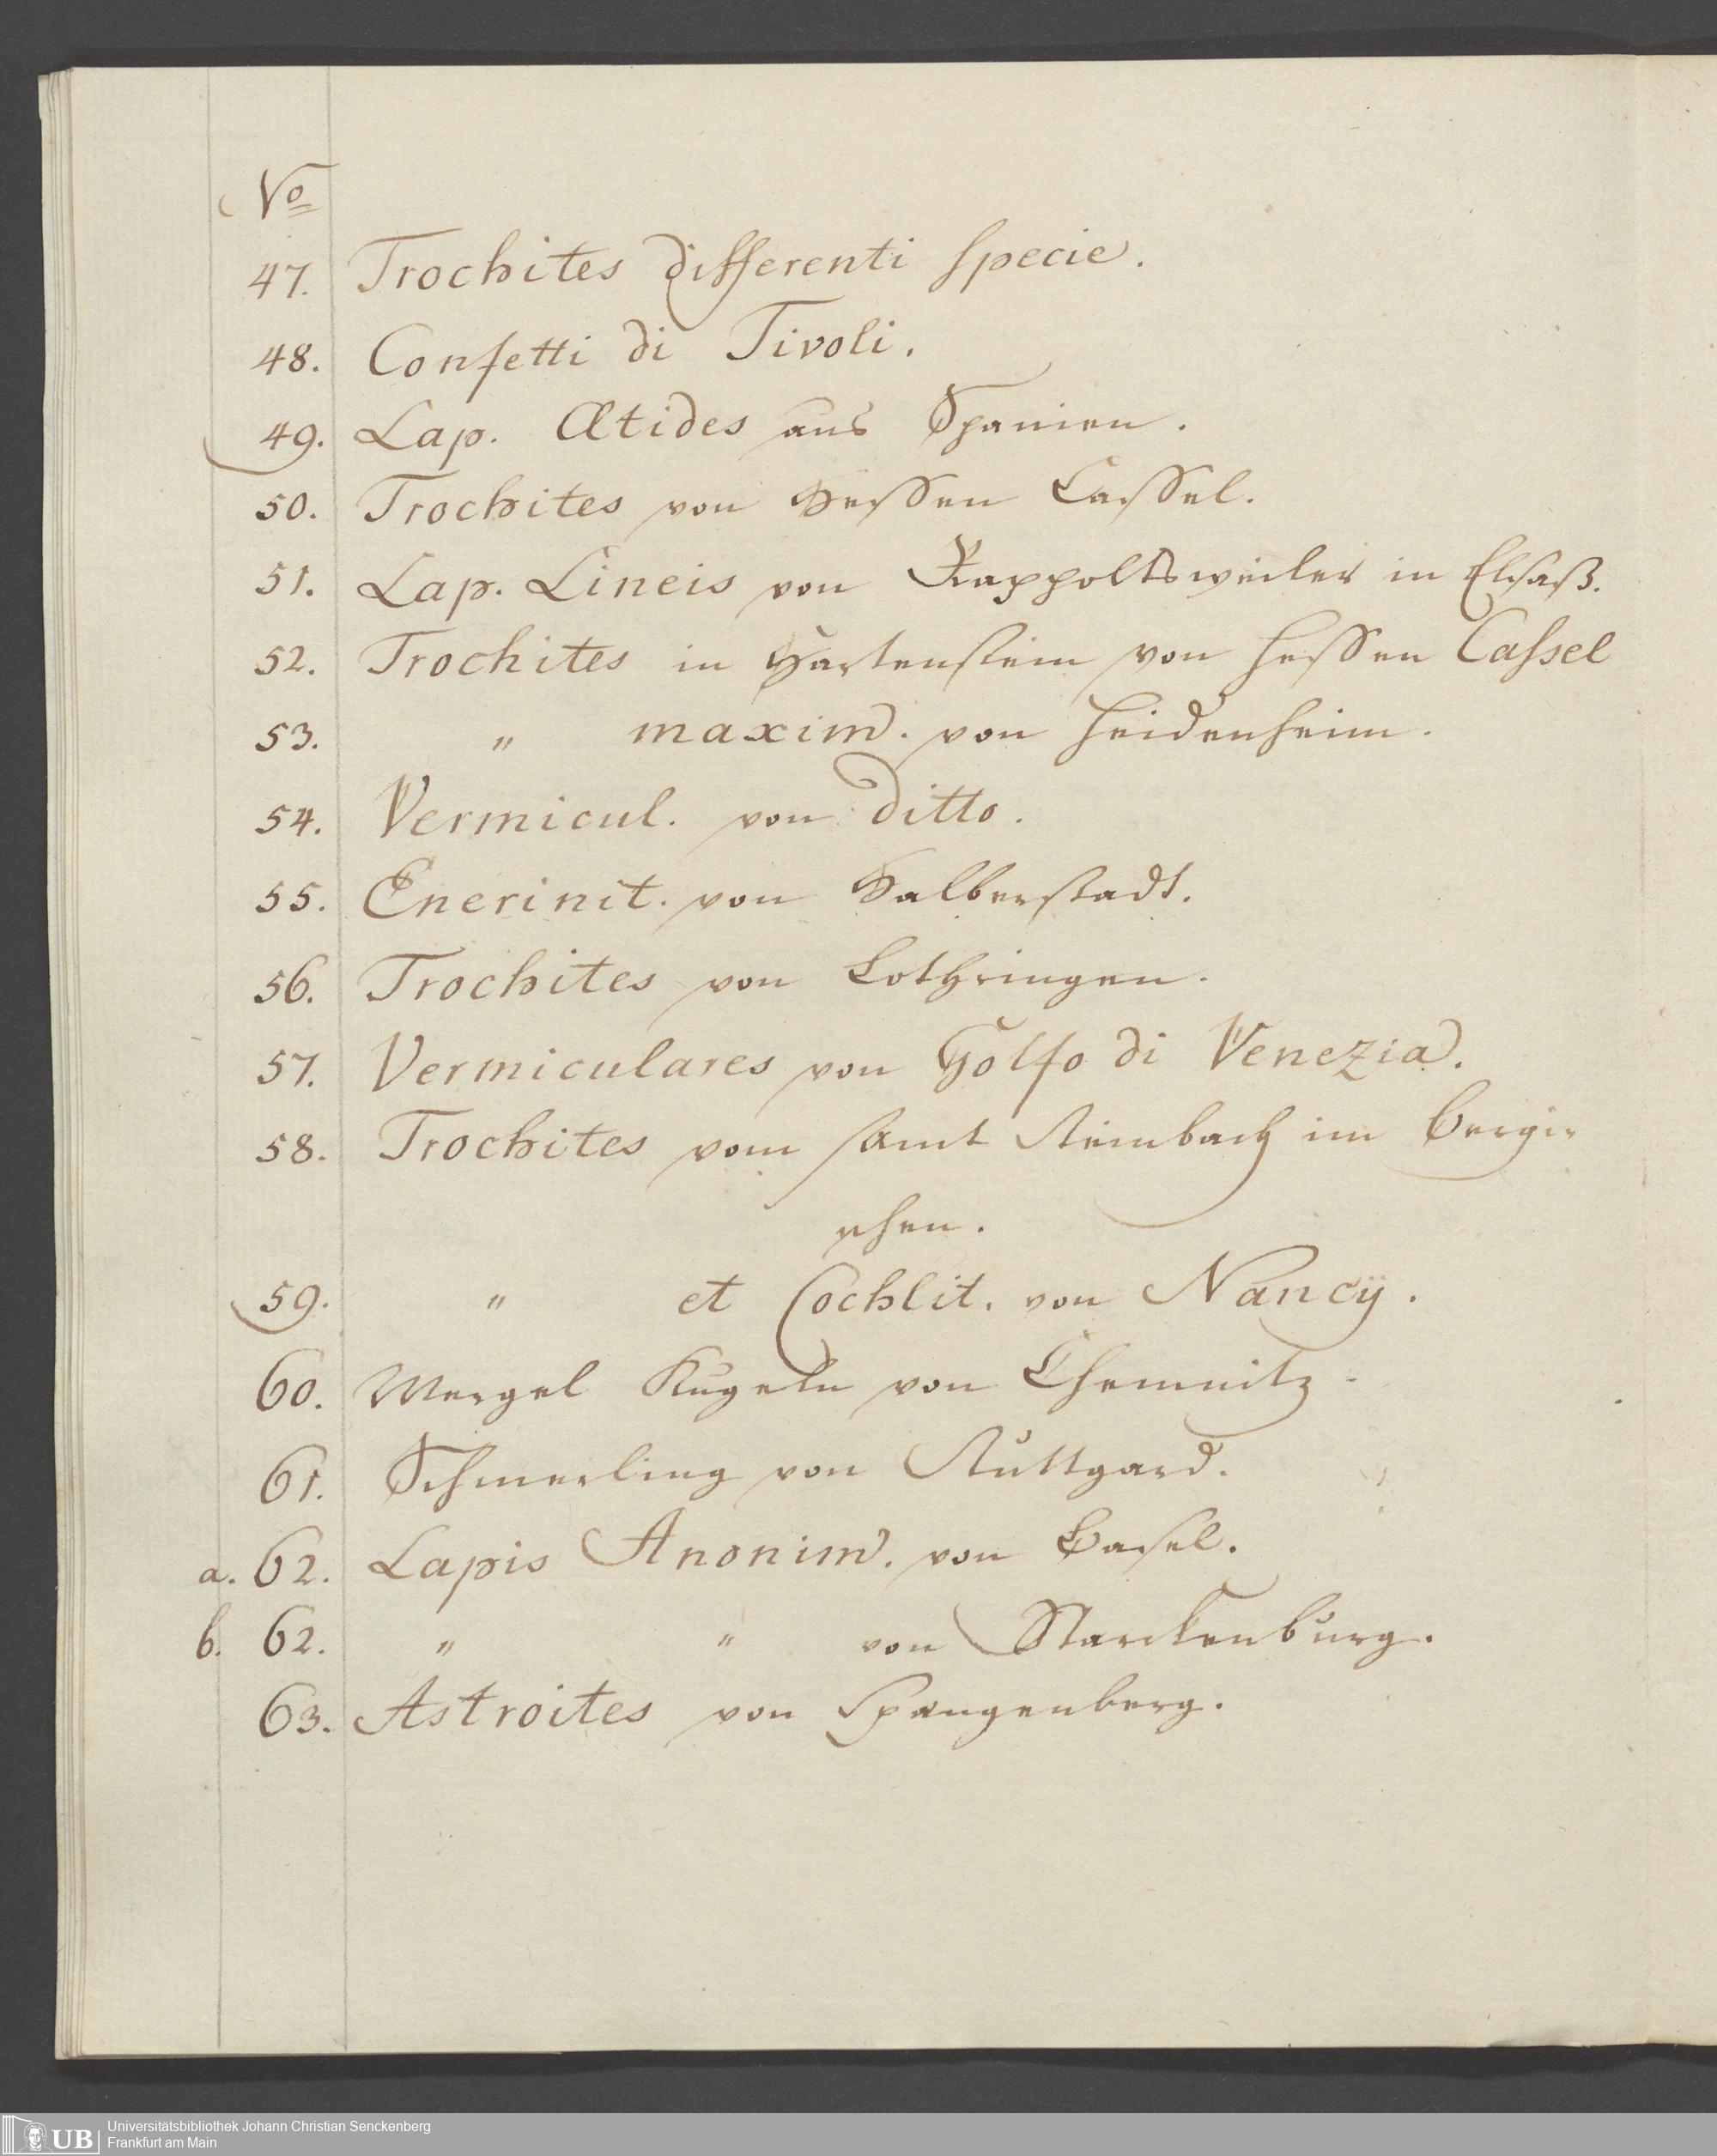 No
47. Trochites differenti specie.
48. Confetti di Tivoli.
49. Lap. Ætides aus Spanien.
50. Trochites von Hessen Cassel.
51. Lap. Lineis von Rappoltsweiler in Elsaß.
52. Trochites in Hartenstein von Hessen Cassel
53. " maxim. von Heidenheim.
54. Vermicul. von ditto.
55. Enerinit. von Halberstadt.
56. Trochites von Lothringen.
57. Vermiculares von Golfo di Venezia.
58. Trochites vom Amt Steinbach im Bergi-
schen.
59. " et Cochlit. von Nancÿ.
60. Mergel Kugeln von Chemnitz.
61. Schmerling von Stuttgard.
a. 62. Lapis Anonim. von Basel.
b. 62. " " von Starckenburg.
63. Astroites von Spangenberg.
UB Universitätsbibliothek Johann Christian Senckenberg
Frankfurt am Main